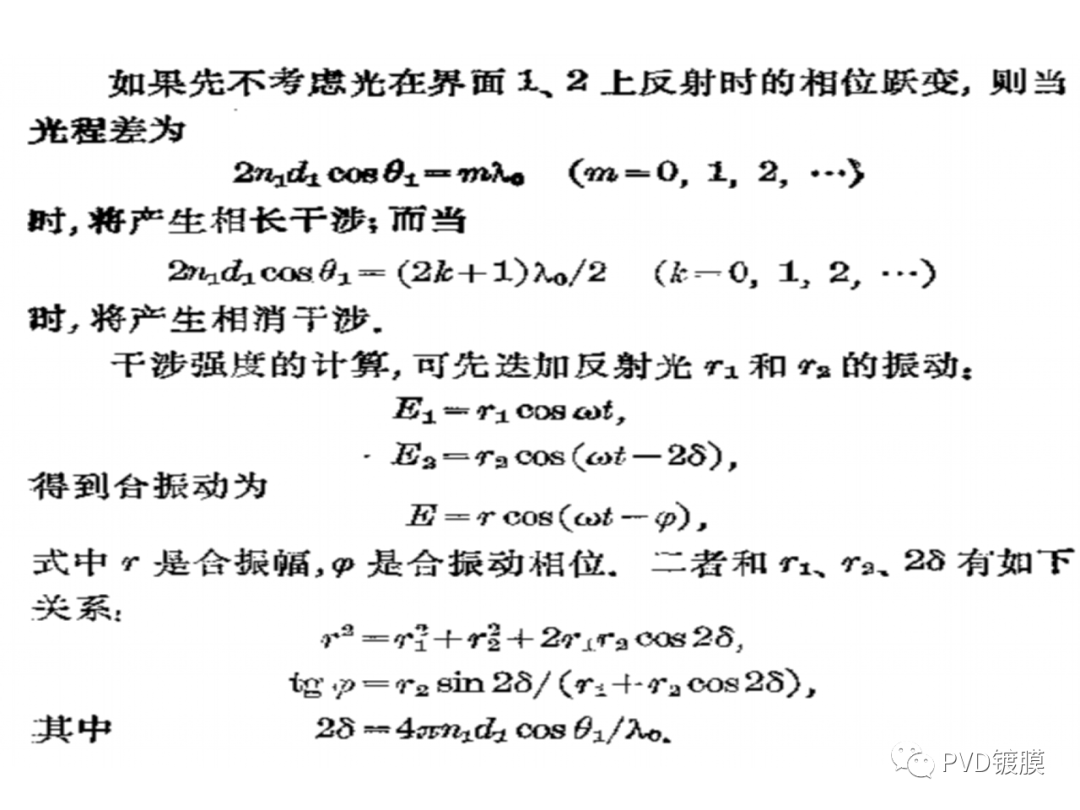 如果先不考虑光在界面1、2上反射时的相位跃变, 则当
光程差为
2n₁d₁cosθ₁=mλ₀ (m=0, 1, 2, …)
时, 将产生相长干涉; 而当
2n₁d₁cosθ₁=(2k+1)λ₀/2 (k=0, 1, 2, …)
时, 将产生相消干涉.
干涉强度的计算, 可先迭加反射光r₁和r₂的振动:
E₁=r₁cosωt,
E₂=r₂cos(ωt-2δ),
得到合振动为
E=rcos(ωt-φ),
式中r是合振幅, φ是合振动相位. 二者和r₁、r₂、2δ有如下
关系:
r²=r₁²+r₂²+2r₁r₂cos2δ,
tgφ=r₂sin2δ/(r₁+r₂cos2δ),
其中 2δ=4πn₁d₁cosθ₁/λ₀.
PVD镀膜